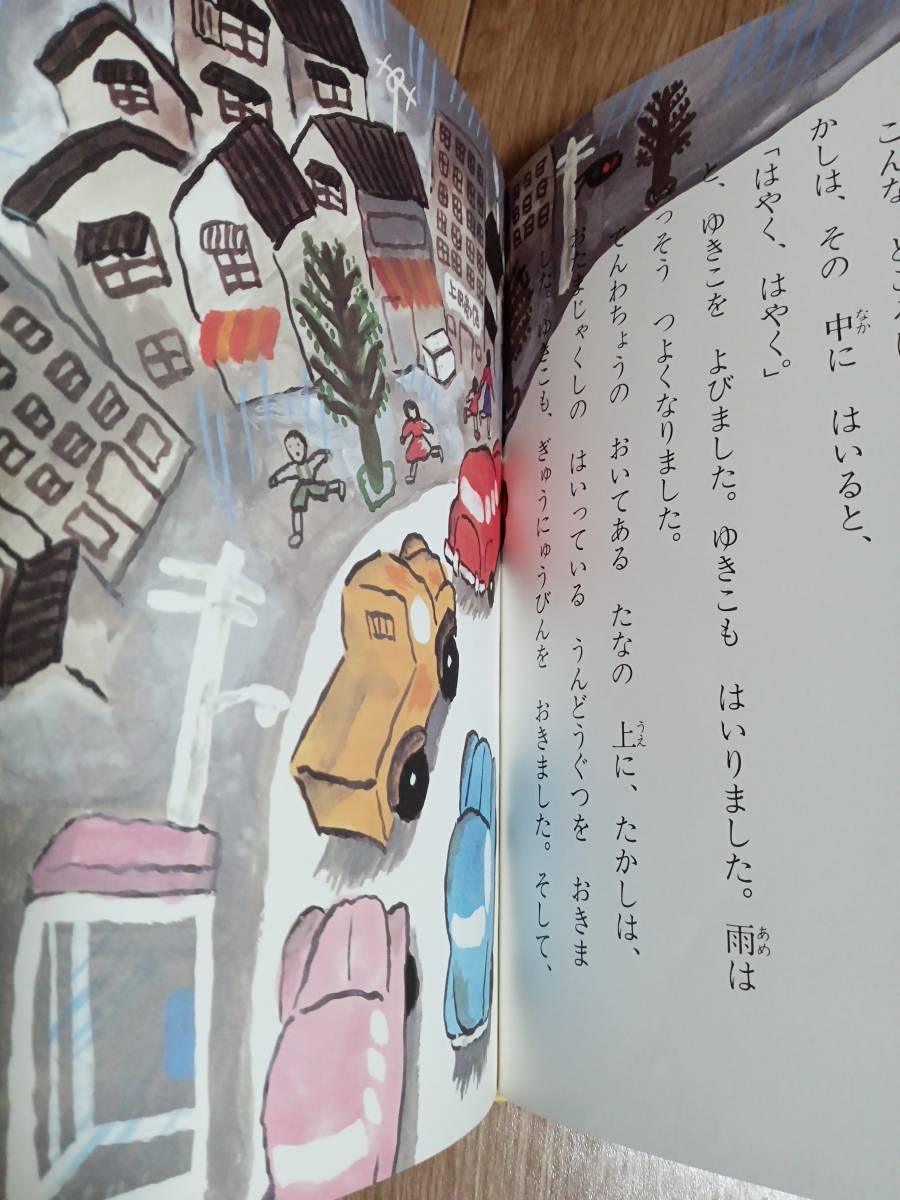 こんな
かしは、その　中に　はいると、
なか
「はやく、はやく。」
と、ゆきこを　よびました。ゆきこも　はいりました。雨は
あめ
っそう　つよくなりました。
でんわちょうの　おいてある　たなの　上に、たかしは、
うえ
おたまじゃくしの　はいっている　うんどうぐつを　おきま
した。ゆきこも、ぎゅうにゅうびんを　おきました。そして、